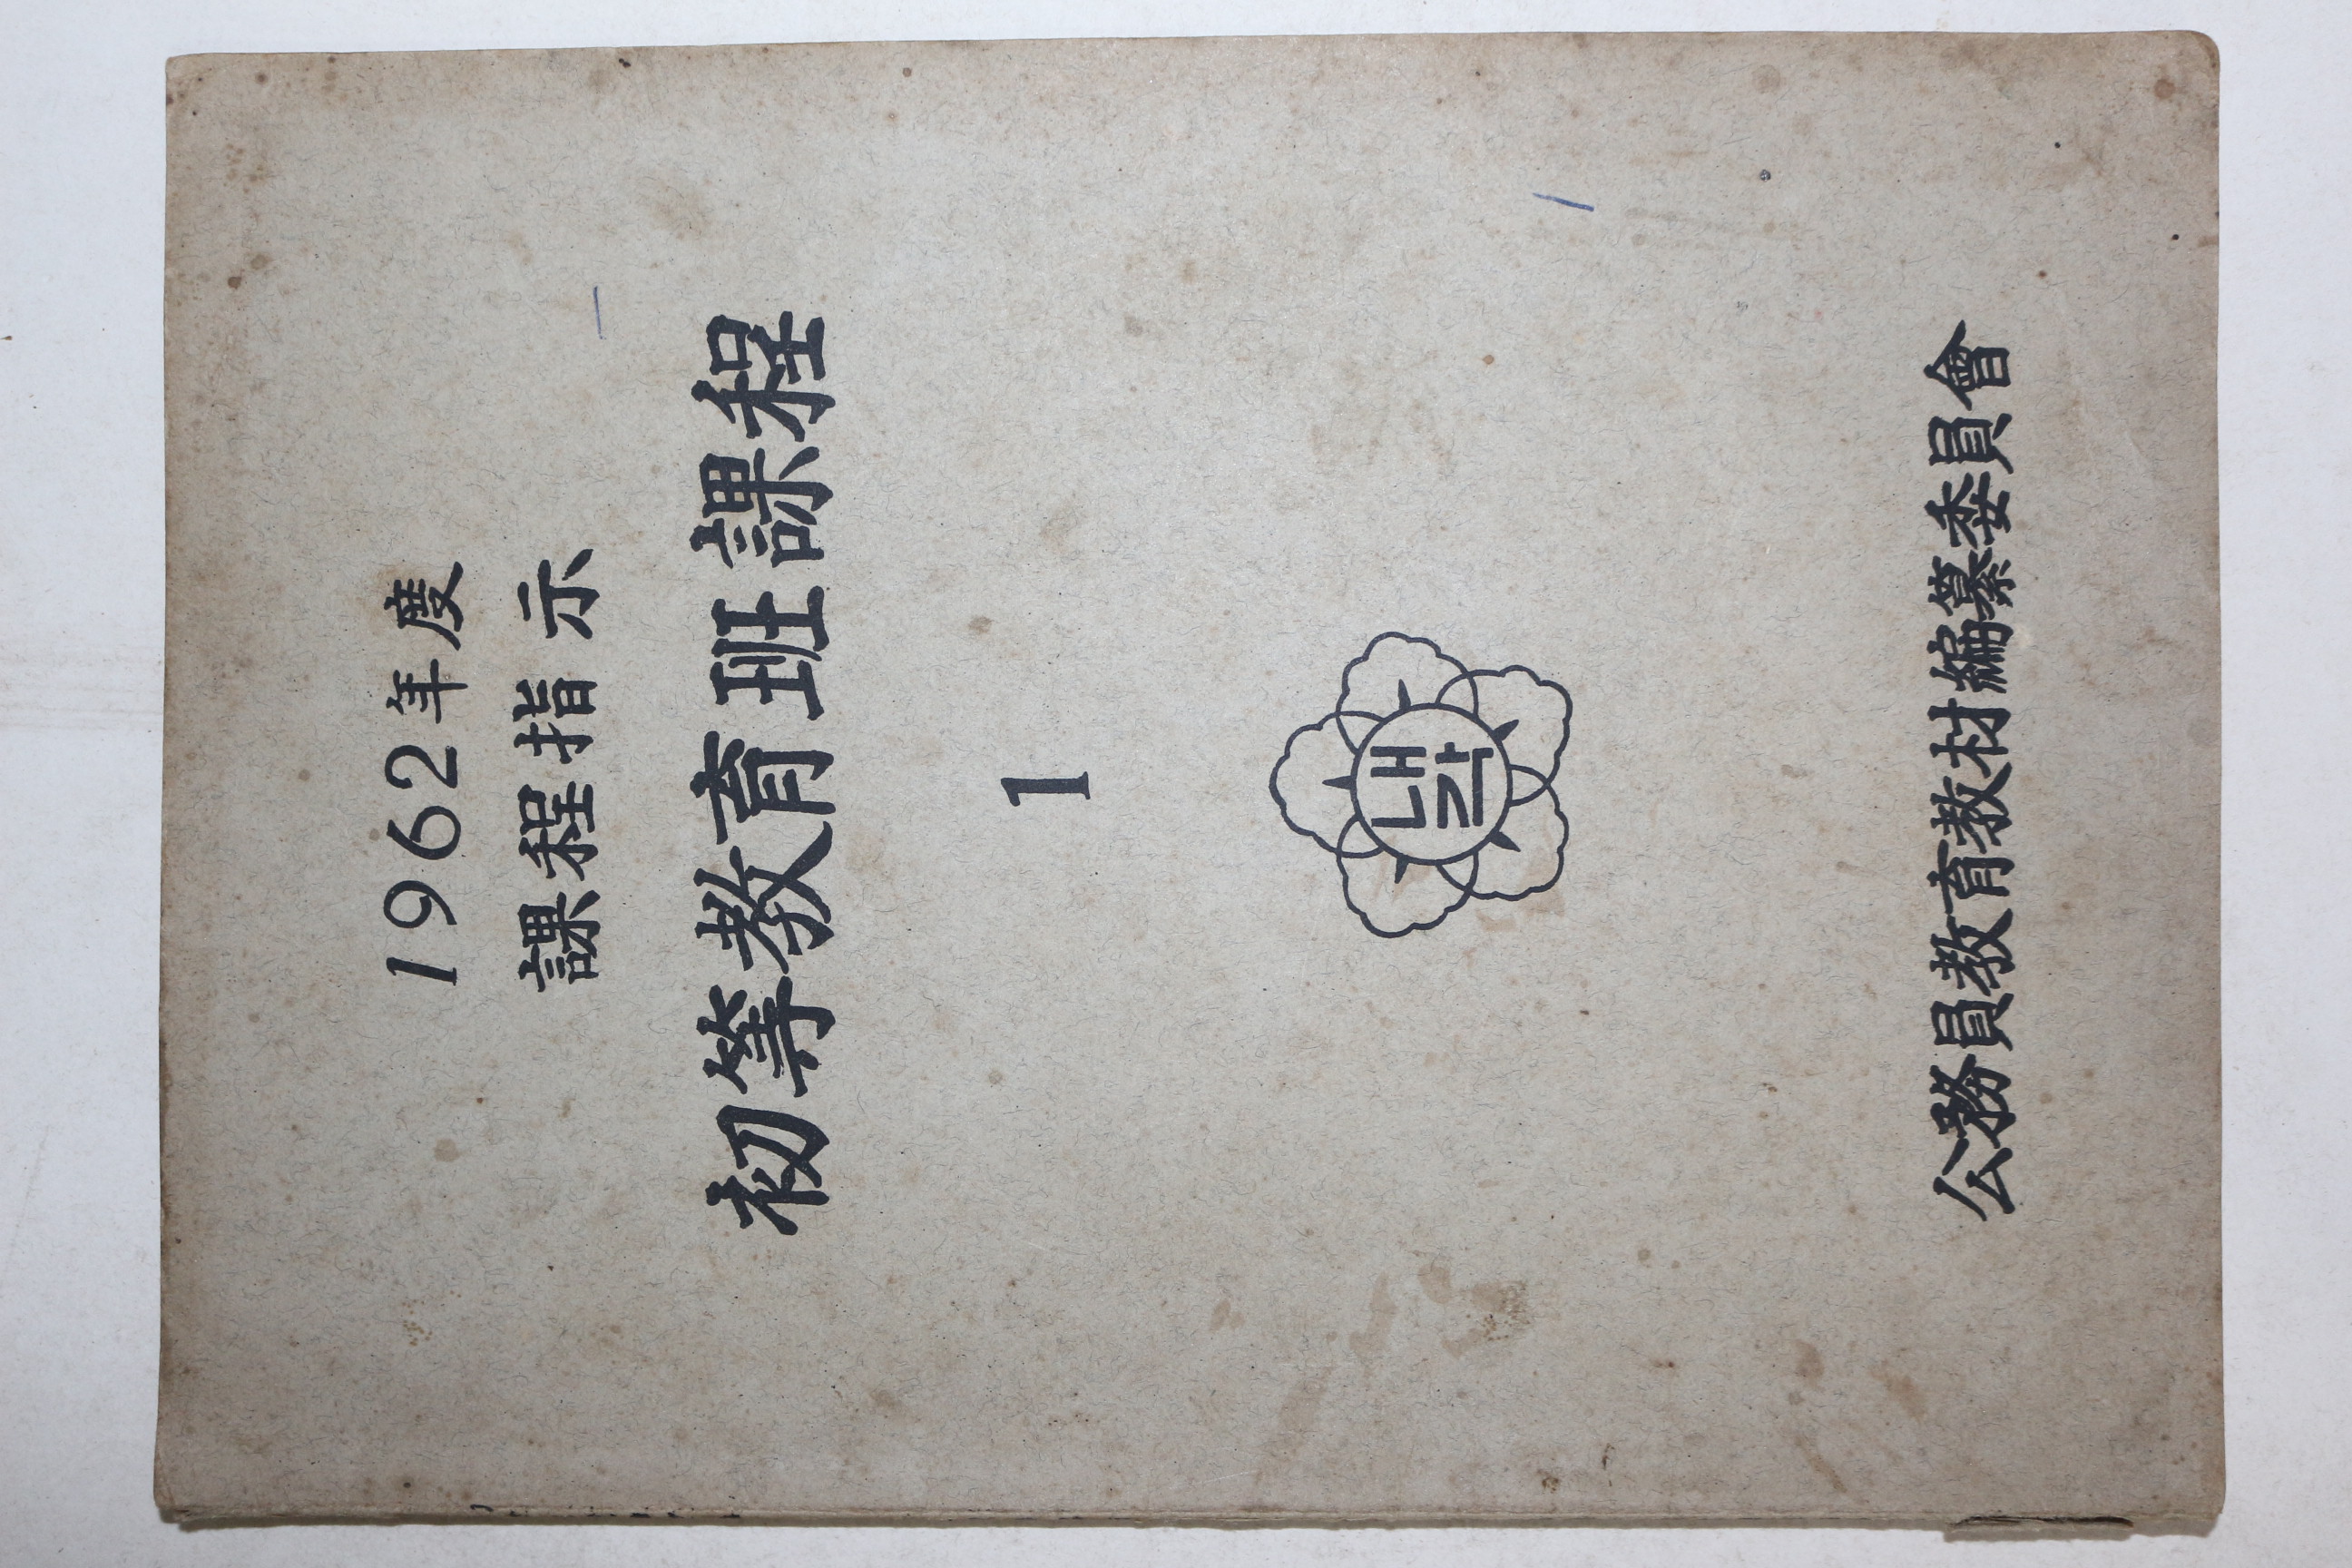 1962年度
課程指示
初等教育班課程
1
내
각
公務員教育教材編纂委員會